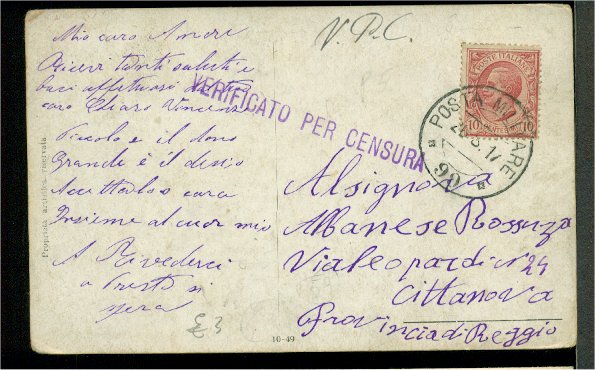 Mio caro Amore
Ricevi tanti saluti e
baci affettuosi dal tuo
caro Chiaro Vincenzo
Piccolo e il dono
Grande è il desio
Accettalo o cara
Insieme al cuor mio
A Rivederci
a Presto si
spera
Proprietà artistica riservata
£3
10-49
V.P.C.
VERIFICATO PER CENSURA
POSTE ITALIANE
10
10
POSTA MILITARE
17
99
Alsignora
Albanese Rosuzza
Viale opardi n 24
Cittanova
Provinciadi Reggio